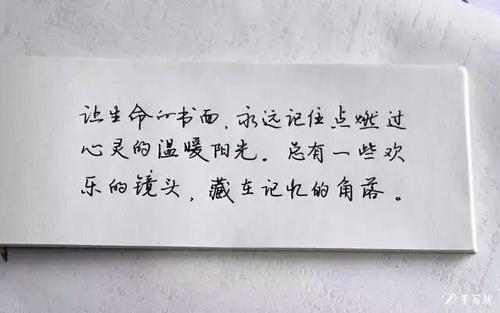 让生命的书面，永远记住点燃过
心灵的温暖阳光。总有一些欢
乐的镜头，藏在记忆的角落。
手写